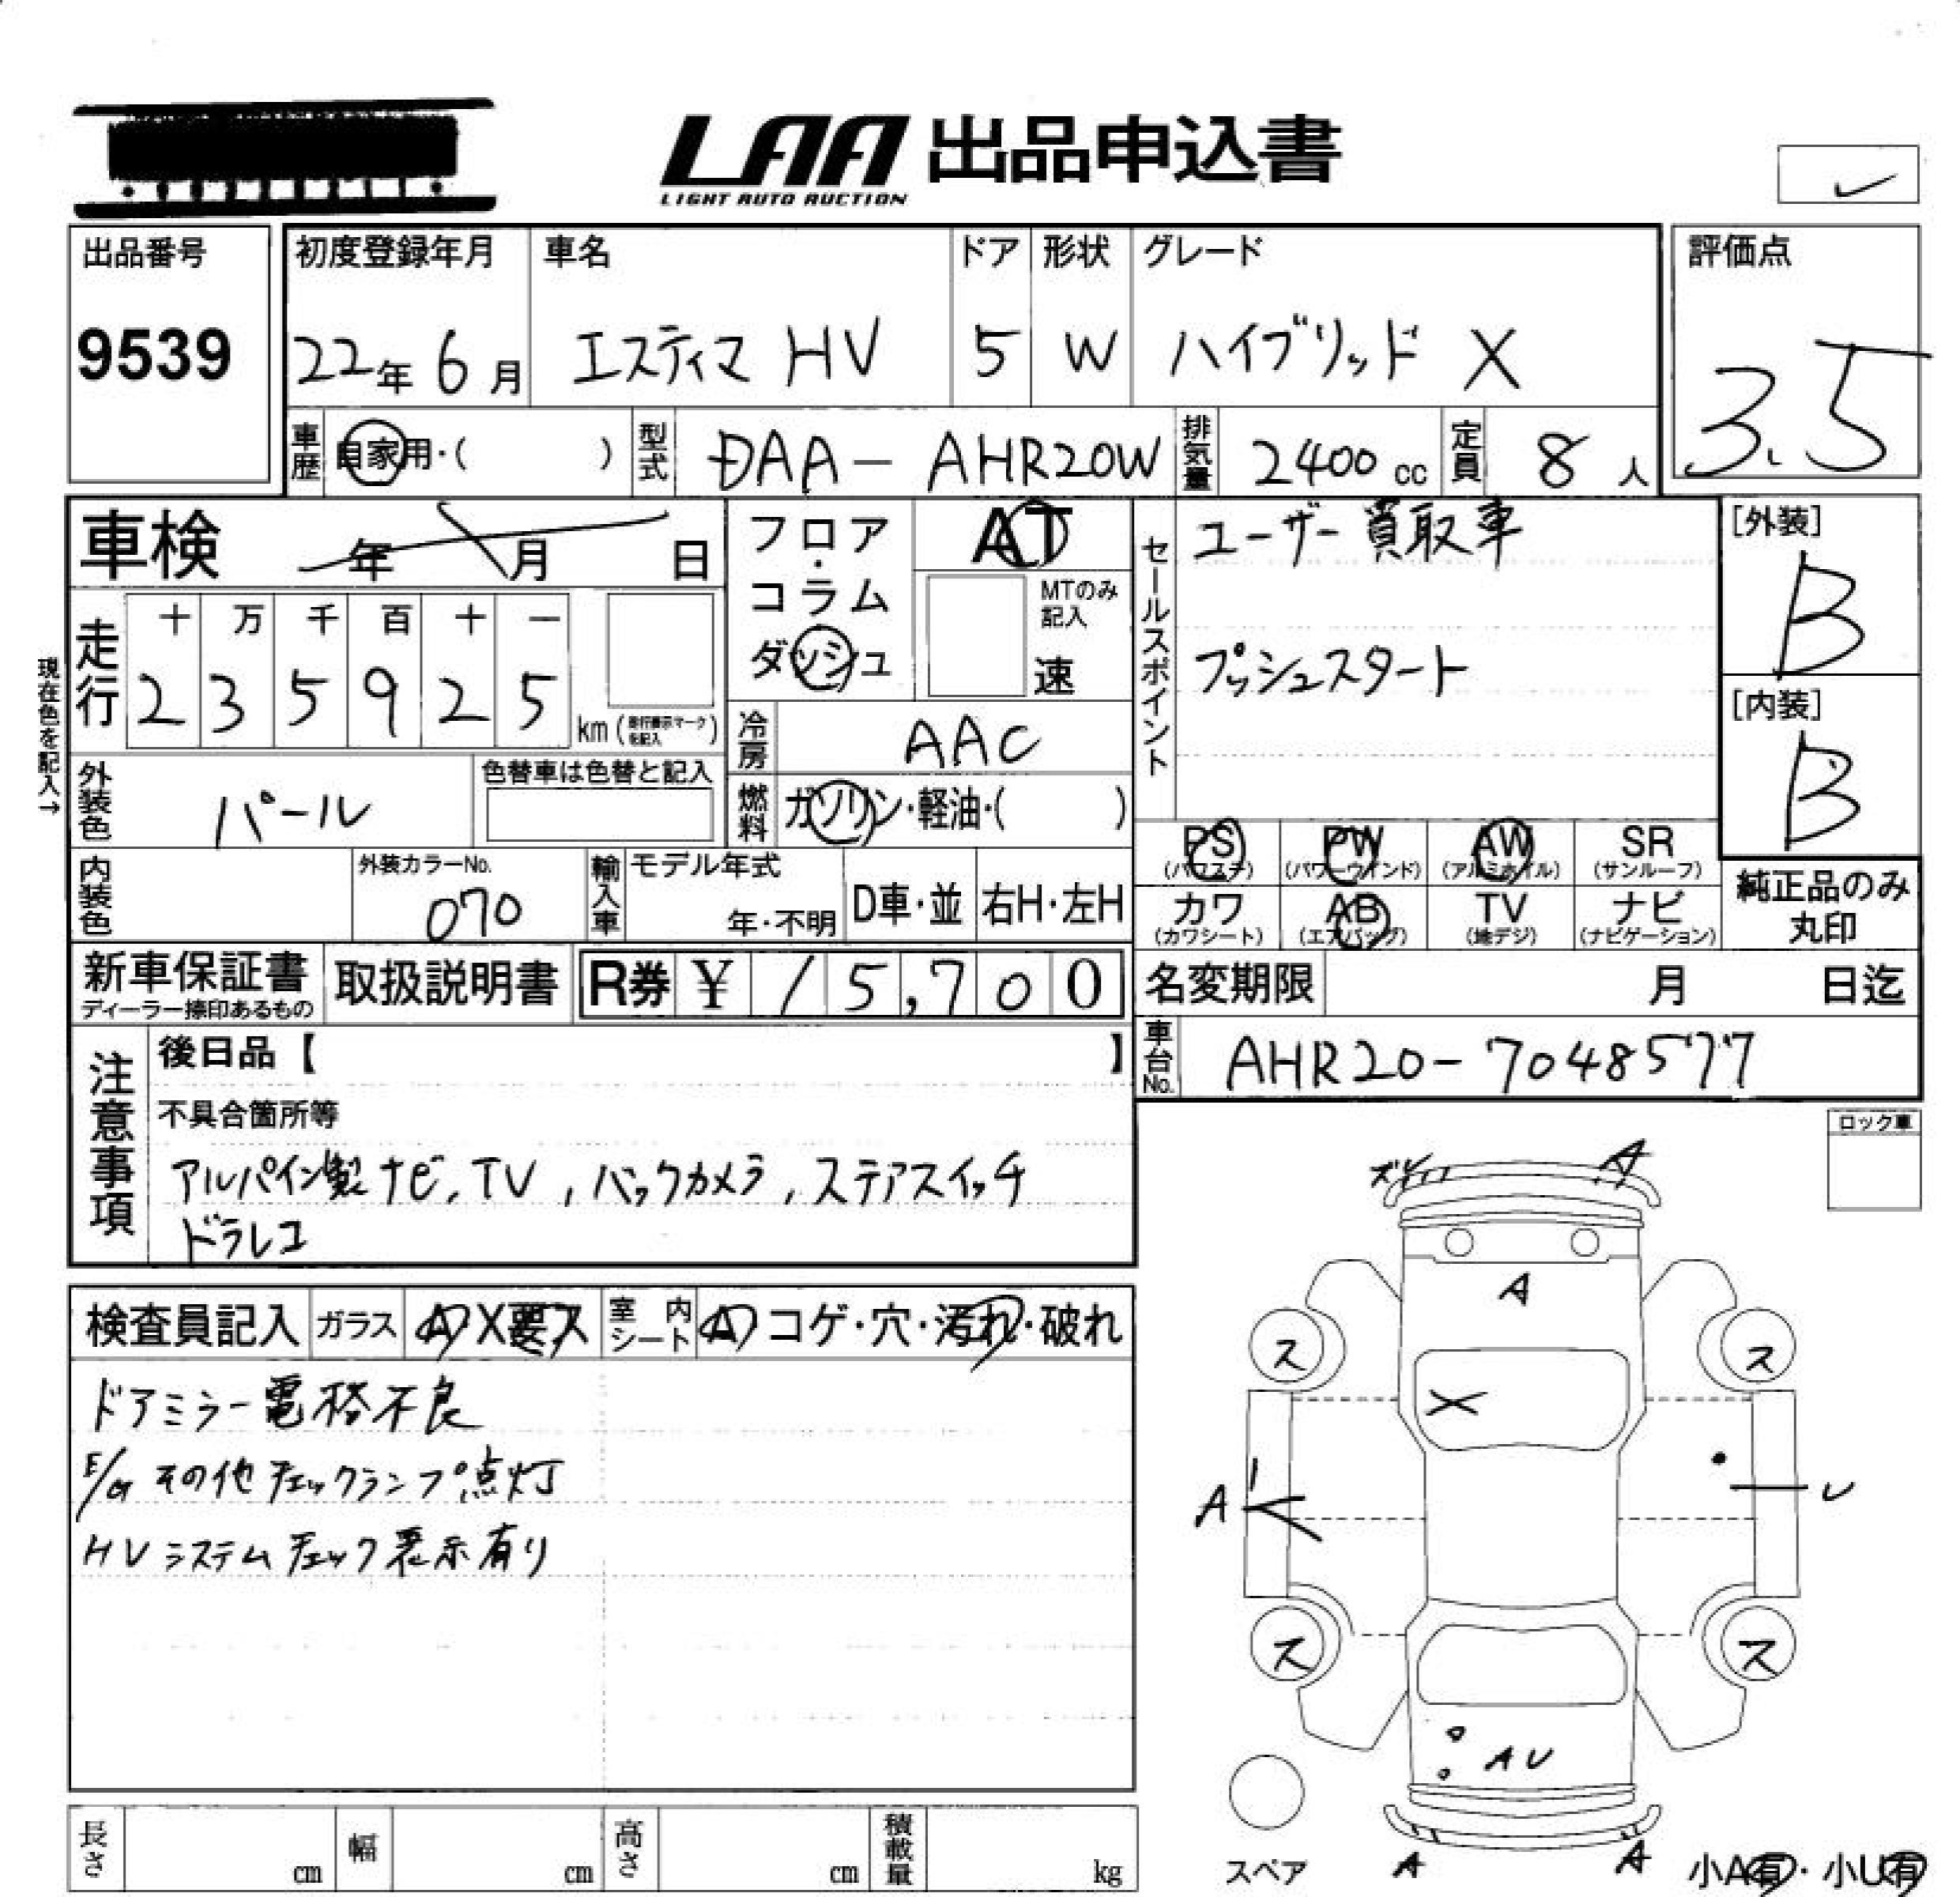 LAA 出品申込書
LIGHT AUTO AUCTION
出品番号
9539
初度登録年月
22年6月
車名
エスティマ HV
ドア
5
形状
W
グレード
ハイブリッド X
評価点
3.5
車歴 自家用・( )
型式 DAA-AHR20W
排気量 2400cc
定員 8人
車検 年 月 日
フロア・コラム
ダッシュ
AT
MTのみ記入
速
セールスポイント
ユーザー買取車
プッシュスタート
[外装]
B
[内装]
B
現在色を記入→
走行
十 万 千 百 十 一
2 3 5 9 2 5
km (走行表示マークを記入)
冷房 AAC
外装色 パール
色替車は色替と記入
燃料 ガソリン・軽油・( )
PS (パワステ)
PW (パワーウインド)
AW (アルミホイル)
SR (サンルーフ)
カワ (カワシート)
AB (エアバッグ)
TV (地デジ)
ナビ (ナビゲーション)
純正品のみ
丸印
内装色
外装カラーNo.
070
輸入車
モデル年式
年・不明
D車・並
右H・左H
新車保証書
ディーラー捺印あるもの
取扱説明書
R券 ¥ 15,700
名変期限 月 日迄
車台No. AHR20-7048577
注意事項
後日品【 】
不具合箇所等
アルパイン製ナビ,TV,バックカメラ,ステアスイッチ
ドラレコ
ロック車
ズレ
A
A
検査員記入
ガラス A X要ス
室内シート A コゲ・穴・汚れ・破れ
ドアミラー電格不良
E/G その他チェックランプ点灯
HVシステムチェック表示有り
ス
ス
X
A
U
ス
ス
AU
A
A
スペア
小A有・小U有
長さ cm
幅 cm
高さ cm
積載量 kg